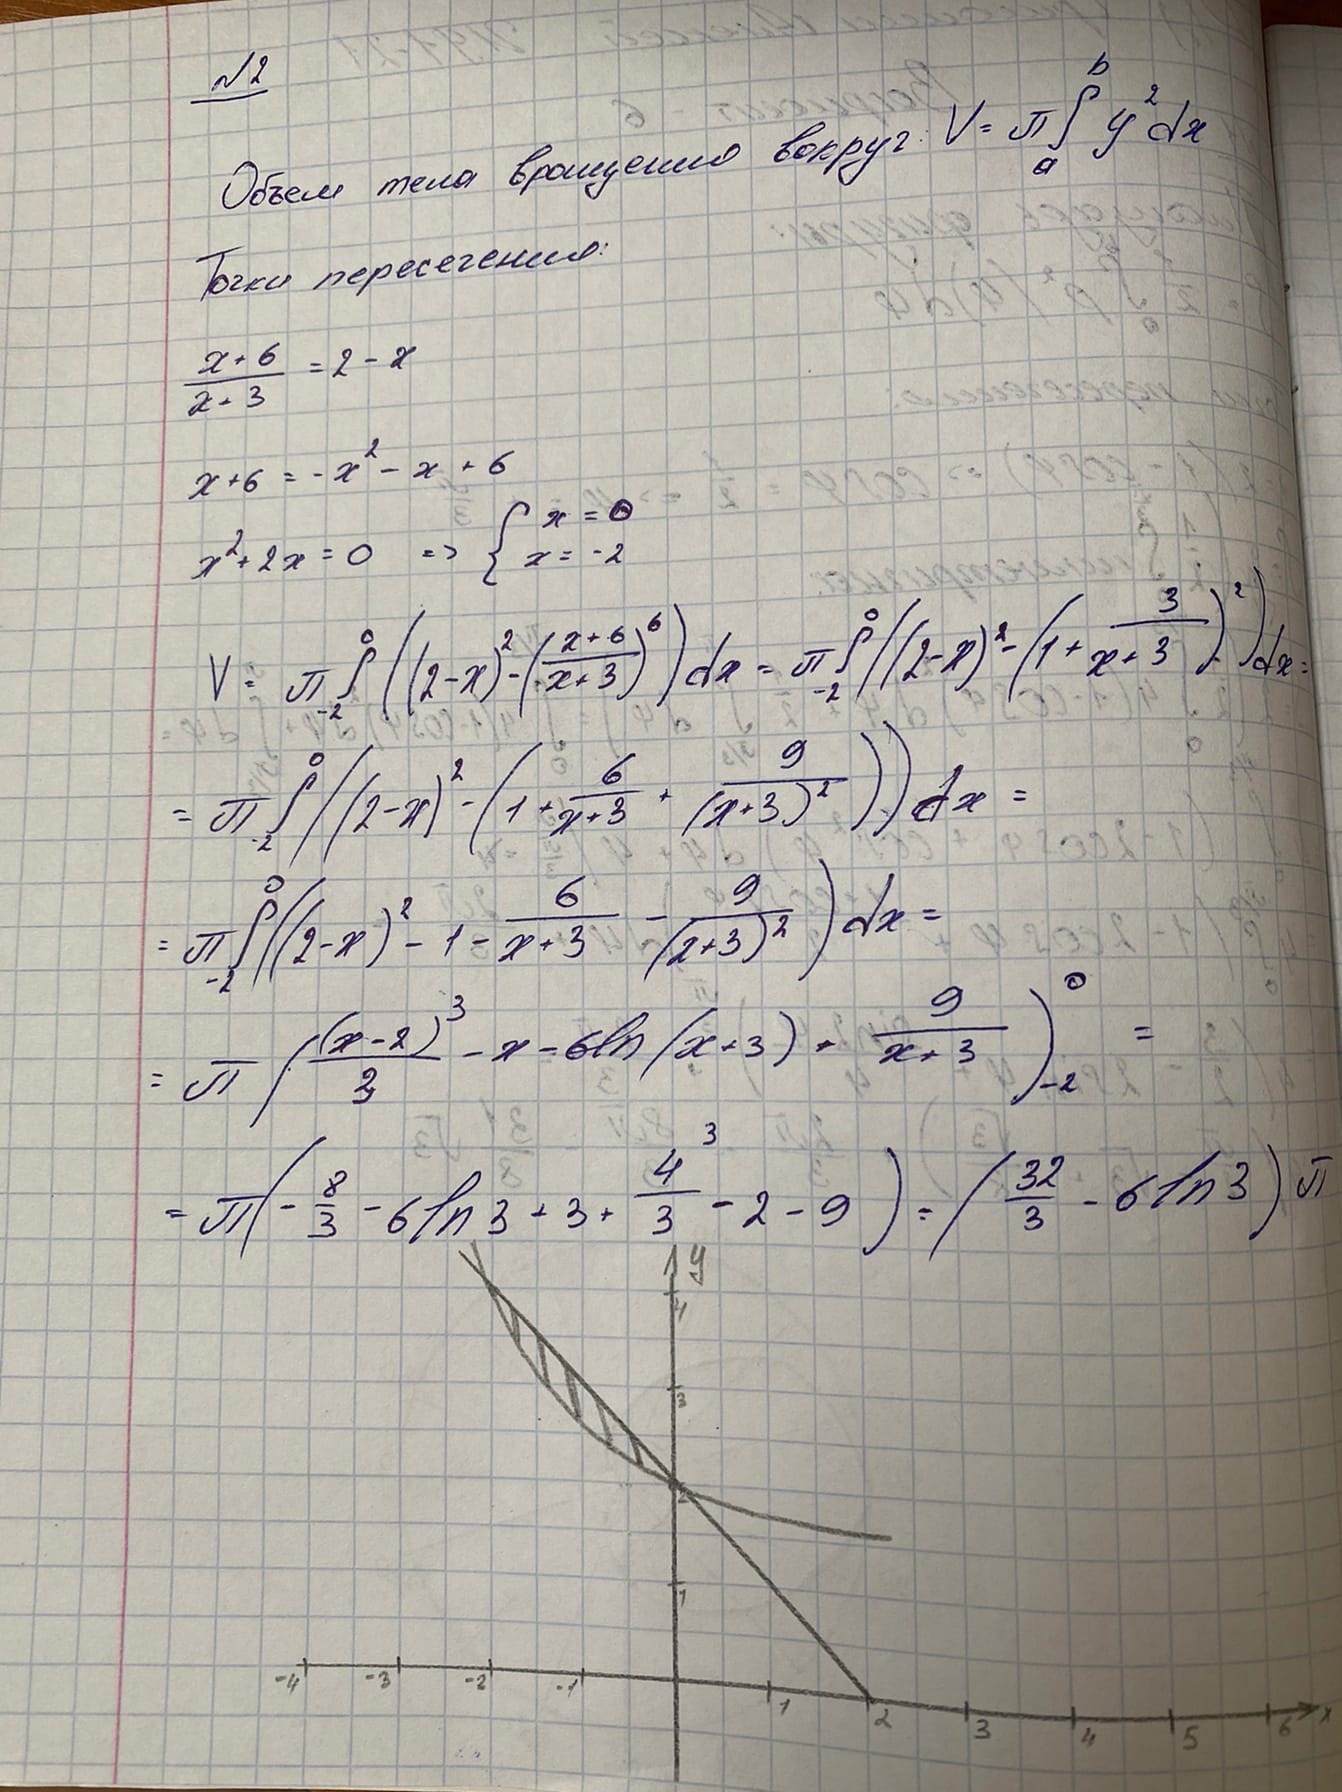 №2
Объем тела вращения вокруг: V = π∫_a^b y² dx
Точки пересечения:
(x+6)/(x+3) = 2 - x
x+6 = -x² - x + 6
x² + 2x = 0 => { x = 0
x = -2
V = π∫_{-2}^0 ((2-x)² - ((x+6)/(x+3))⁶) dx = π∫_{-2}^0 ((2-x)² - (1 + 3/(x+3))²) dx =
= π∫_{-2}^0 ((2-x)² - (1 + 6/(x+3) + 9/(x+3)²)) dx =
= π∫_{-2}^0 ((2-x)² - 1 - 6/(x+3) - 9/(x+3)²) dx =
= π((x-2)³/3 - x - 6ln(x+3) + 9/(x+3))_{-2}^0 =
= π(-8/3 - 6ln3 + 3 + 4³/3 - 2 - 9) = (32/3 - 6ln3)π
y
4
3
2
1
-4 -3 -2 -1 1 2 3 4 5 6 x